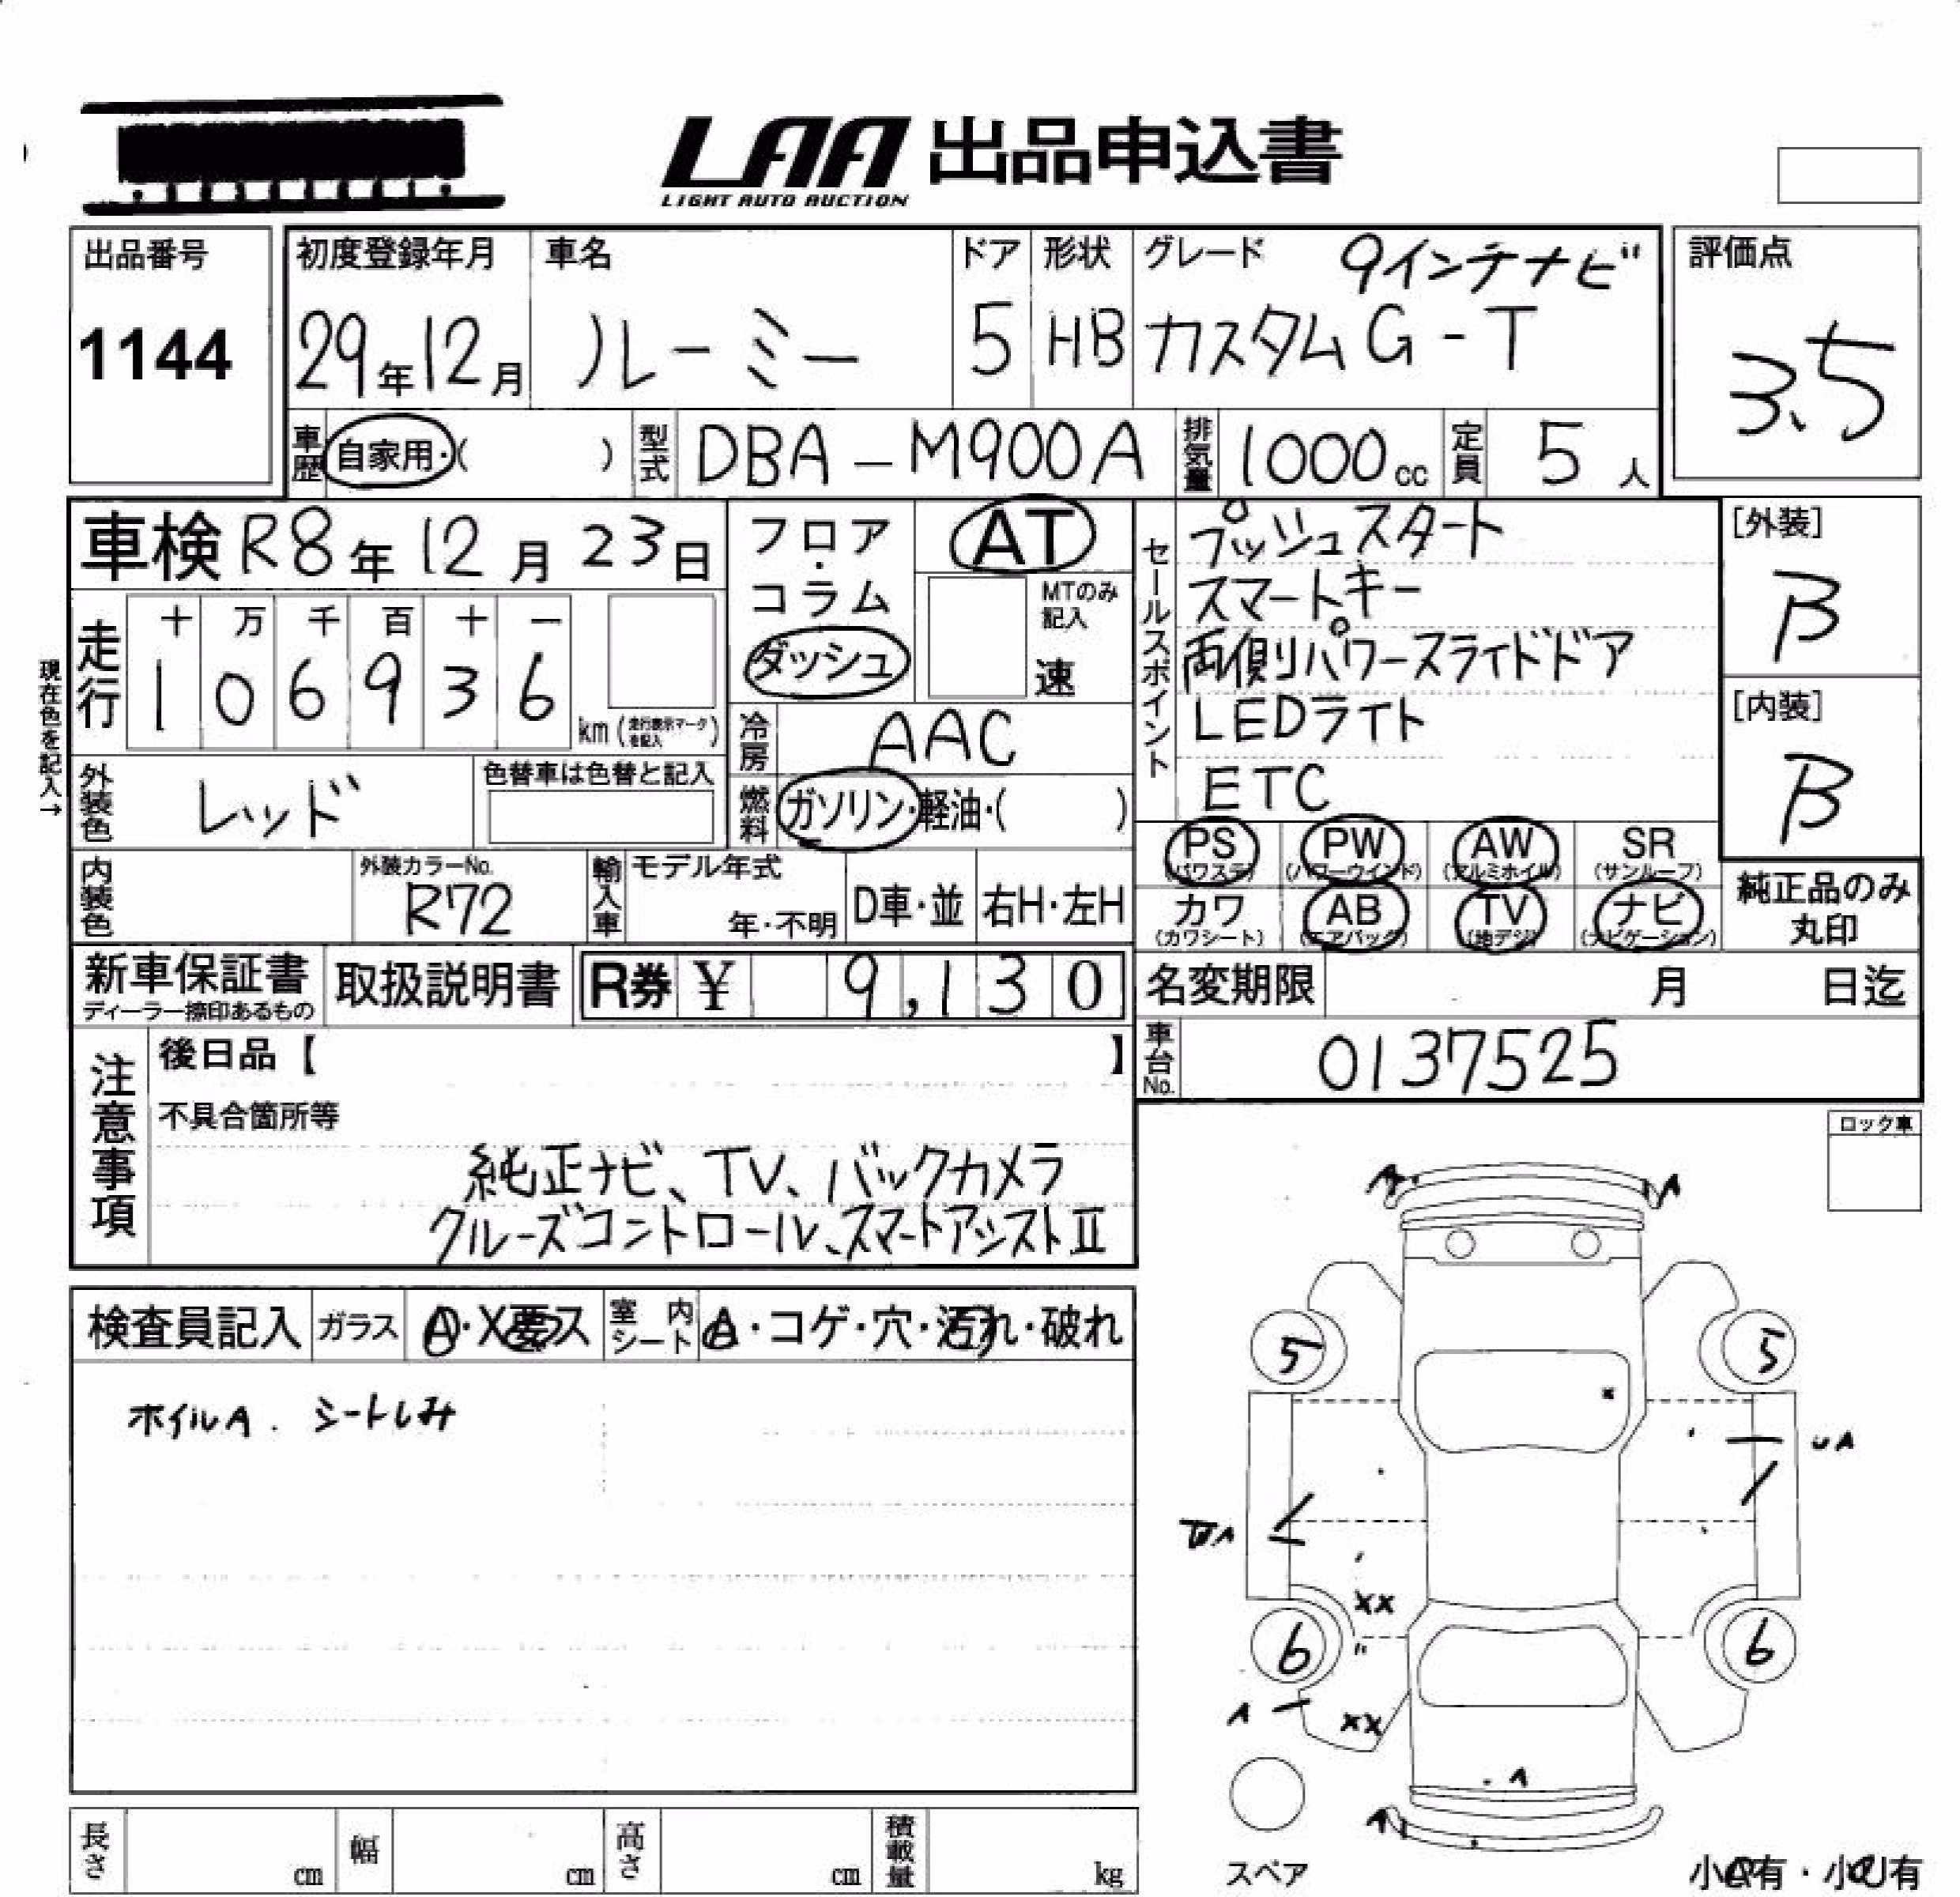 LAA 出品申込書
LIGHT AUTO AUCTION
出品番号
1144
初度登録年月
29年12月
車名
ルーミー
ドア
5
形状
HB
グレード 9インチナビ
カスタムG-T
評価点
3.5
車歴 自家用・( )
型式 DBA-M900A
排気量 1000cc
定員 5人
車検 R8年12月23日
フロア・コラム
ダッシュ
AT
MTのみ記入
速
走行
十 万 千 百 十 一
1 0 6 9 3 6
km(走行表示マークを記入)
現在色を記入→
外装色 レッド
色替車は色替と記入
冷房 AAC
燃料 ガソリン・軽油・( )
内装色
外装カラーNo.
R72
輸入車
モデル年式
年・不明
D車・並
右H・左H
セールスポイント
プッシュスタート
スマートキー
両側パワースライドドア
LEDライト
ETC
[外装]
B
[内装]
B
PS PW AW SR
(パワステ) (パワーウインド) (アルミホイル) (サンルーフ)
カワ AB TV ナビ
(カワシート) (エアバック) (地デジ) (ナビゲーション)
純正品のみ
丸印
新車保証書
ディーラー捺印あるもの
取扱説明書
R券 ¥ 9,130
名変期限 月 日迄
車台No. 0137525
注意事項
後日品【 】
不具合箇所等
純正ナビ、TV、バックカメラ
クルーズコントロール、スマートアシストII
ロック車
検査員記入 ガラス A・X要ス 室内シート A・コゲ・穴・汚れ・破れ
ホイルA. シートしみ
A A
5 5
UA
UA
XX
6 6
A
XX
A
A
スペア
小A有・小U有
長さ cm 幅 cm 高さ cm 積載量 kg